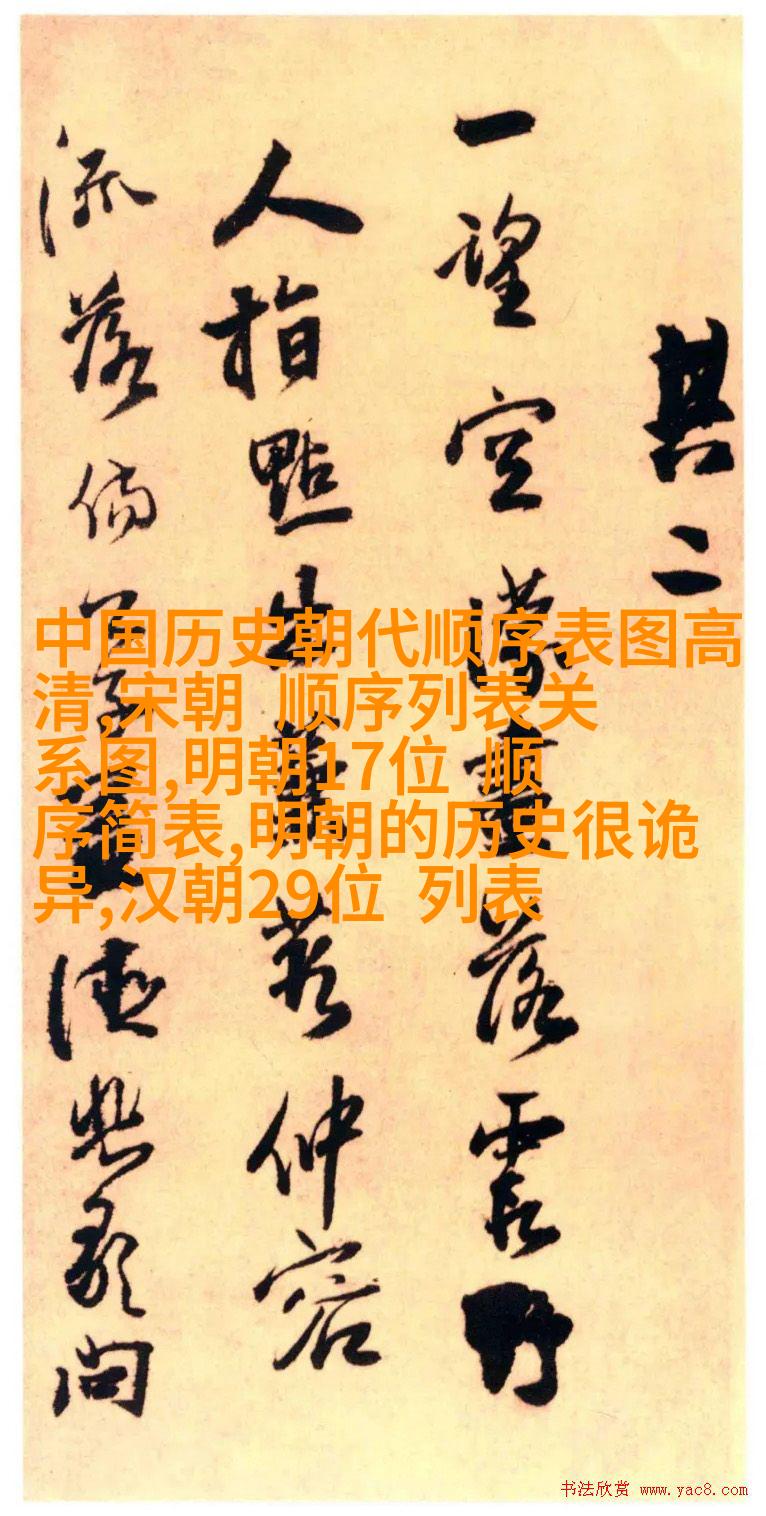 其二
一望空濛落霞野
人指點出若仲容
流落問
中国历史朝代顺序表图高
清,宋朝 顺序列表关
系图,明朝17位 顺
序简表,明朝的历史很诡
异,汉朝29位 列表
书法欣赏 www.yac8.com